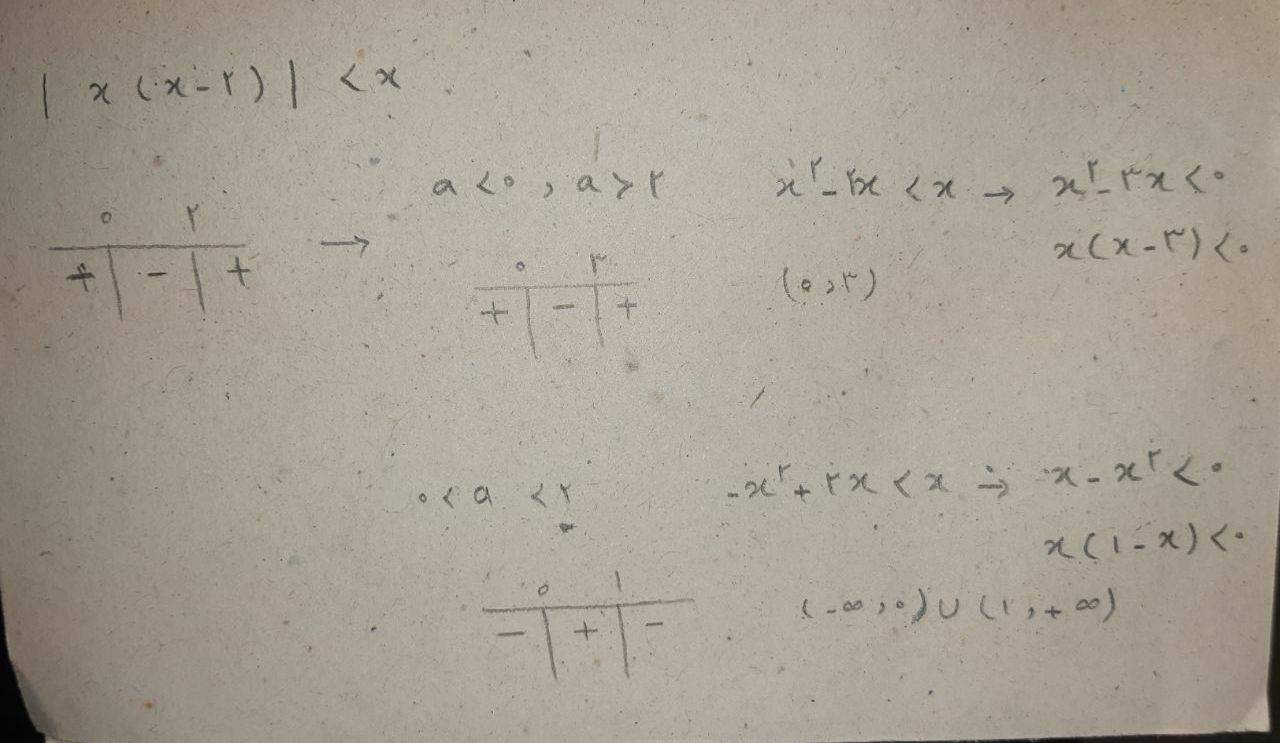 | x (x-۲) | < x
a < ۰ , a > ۲    x^۲ - ۲x < x → x^۲ - ۳x < ۰
۰ ۲    x(x-۳) < ۰
+ - + →    ۰ ۳    (۰ , ۳)
+ - +
۰ < a < ۲    -x^۲ + ۲x < x → x - x^۲ < ۰
x(۱-x) < ۰
۰ ۱    (-∞ , ۰) ∪ (۱ , +∞)
- + -